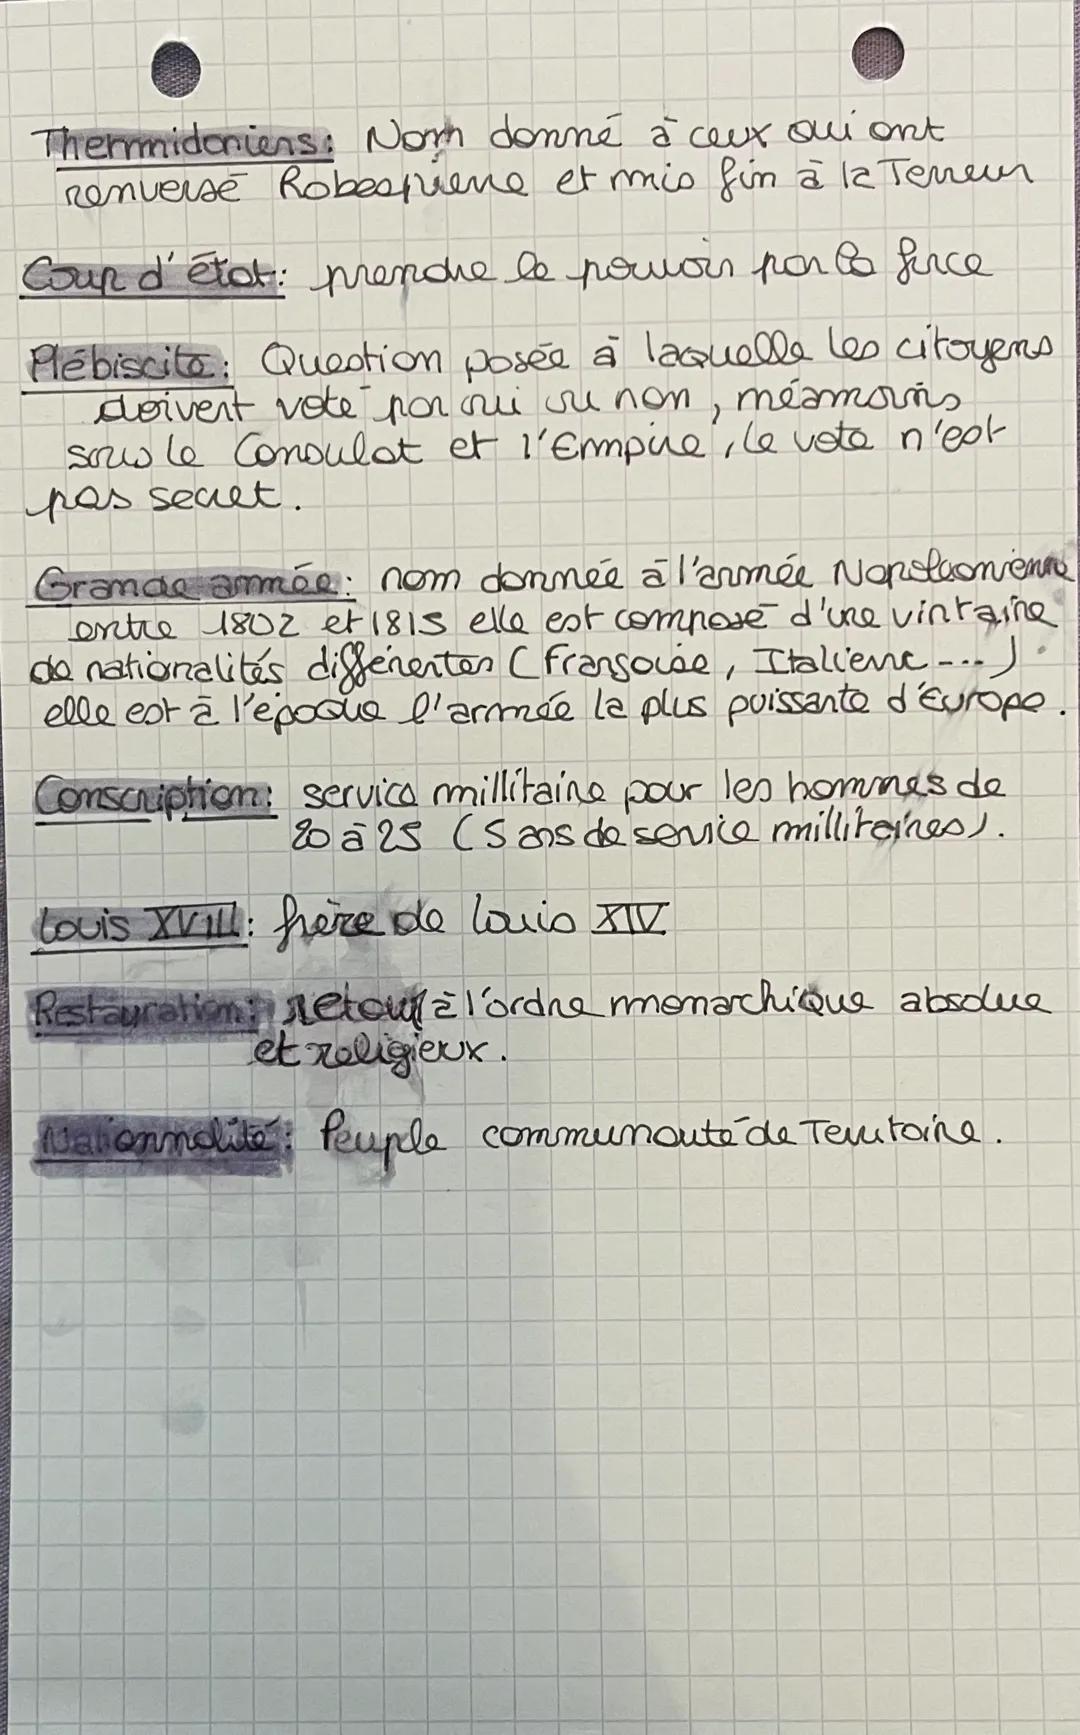 Thermidoniens: Nom donné à ceux qui ont
renversé Robespierre et mis fin à la Terreur
Coup d'état: prendre le pouvoir par la force
Plébiscite: Question posée à laquelle les citoyens
doivent voté par oui ou non, méamoins
sous le Consulat et l'Empire, le vote n'est
pas secret.
Grande armée: nom donnée à l'armée Napoléonienne
entre 1802 et 1815 elle est composé d'une vintaine
de nationalités différentes (Fransoise, Italienne ---)
elle est à l'époque l'armée la plus puissante d'Europe.
Conscription: service millitaire pour les hommes de
20 à 25 (5 ans de service millitaires).
Louis XVIII: frère de Louis XIV
Restauration: retour à l'ordre monarchique absolue
et religieux.
Nationnalité: Peuple communauté de Territoire.